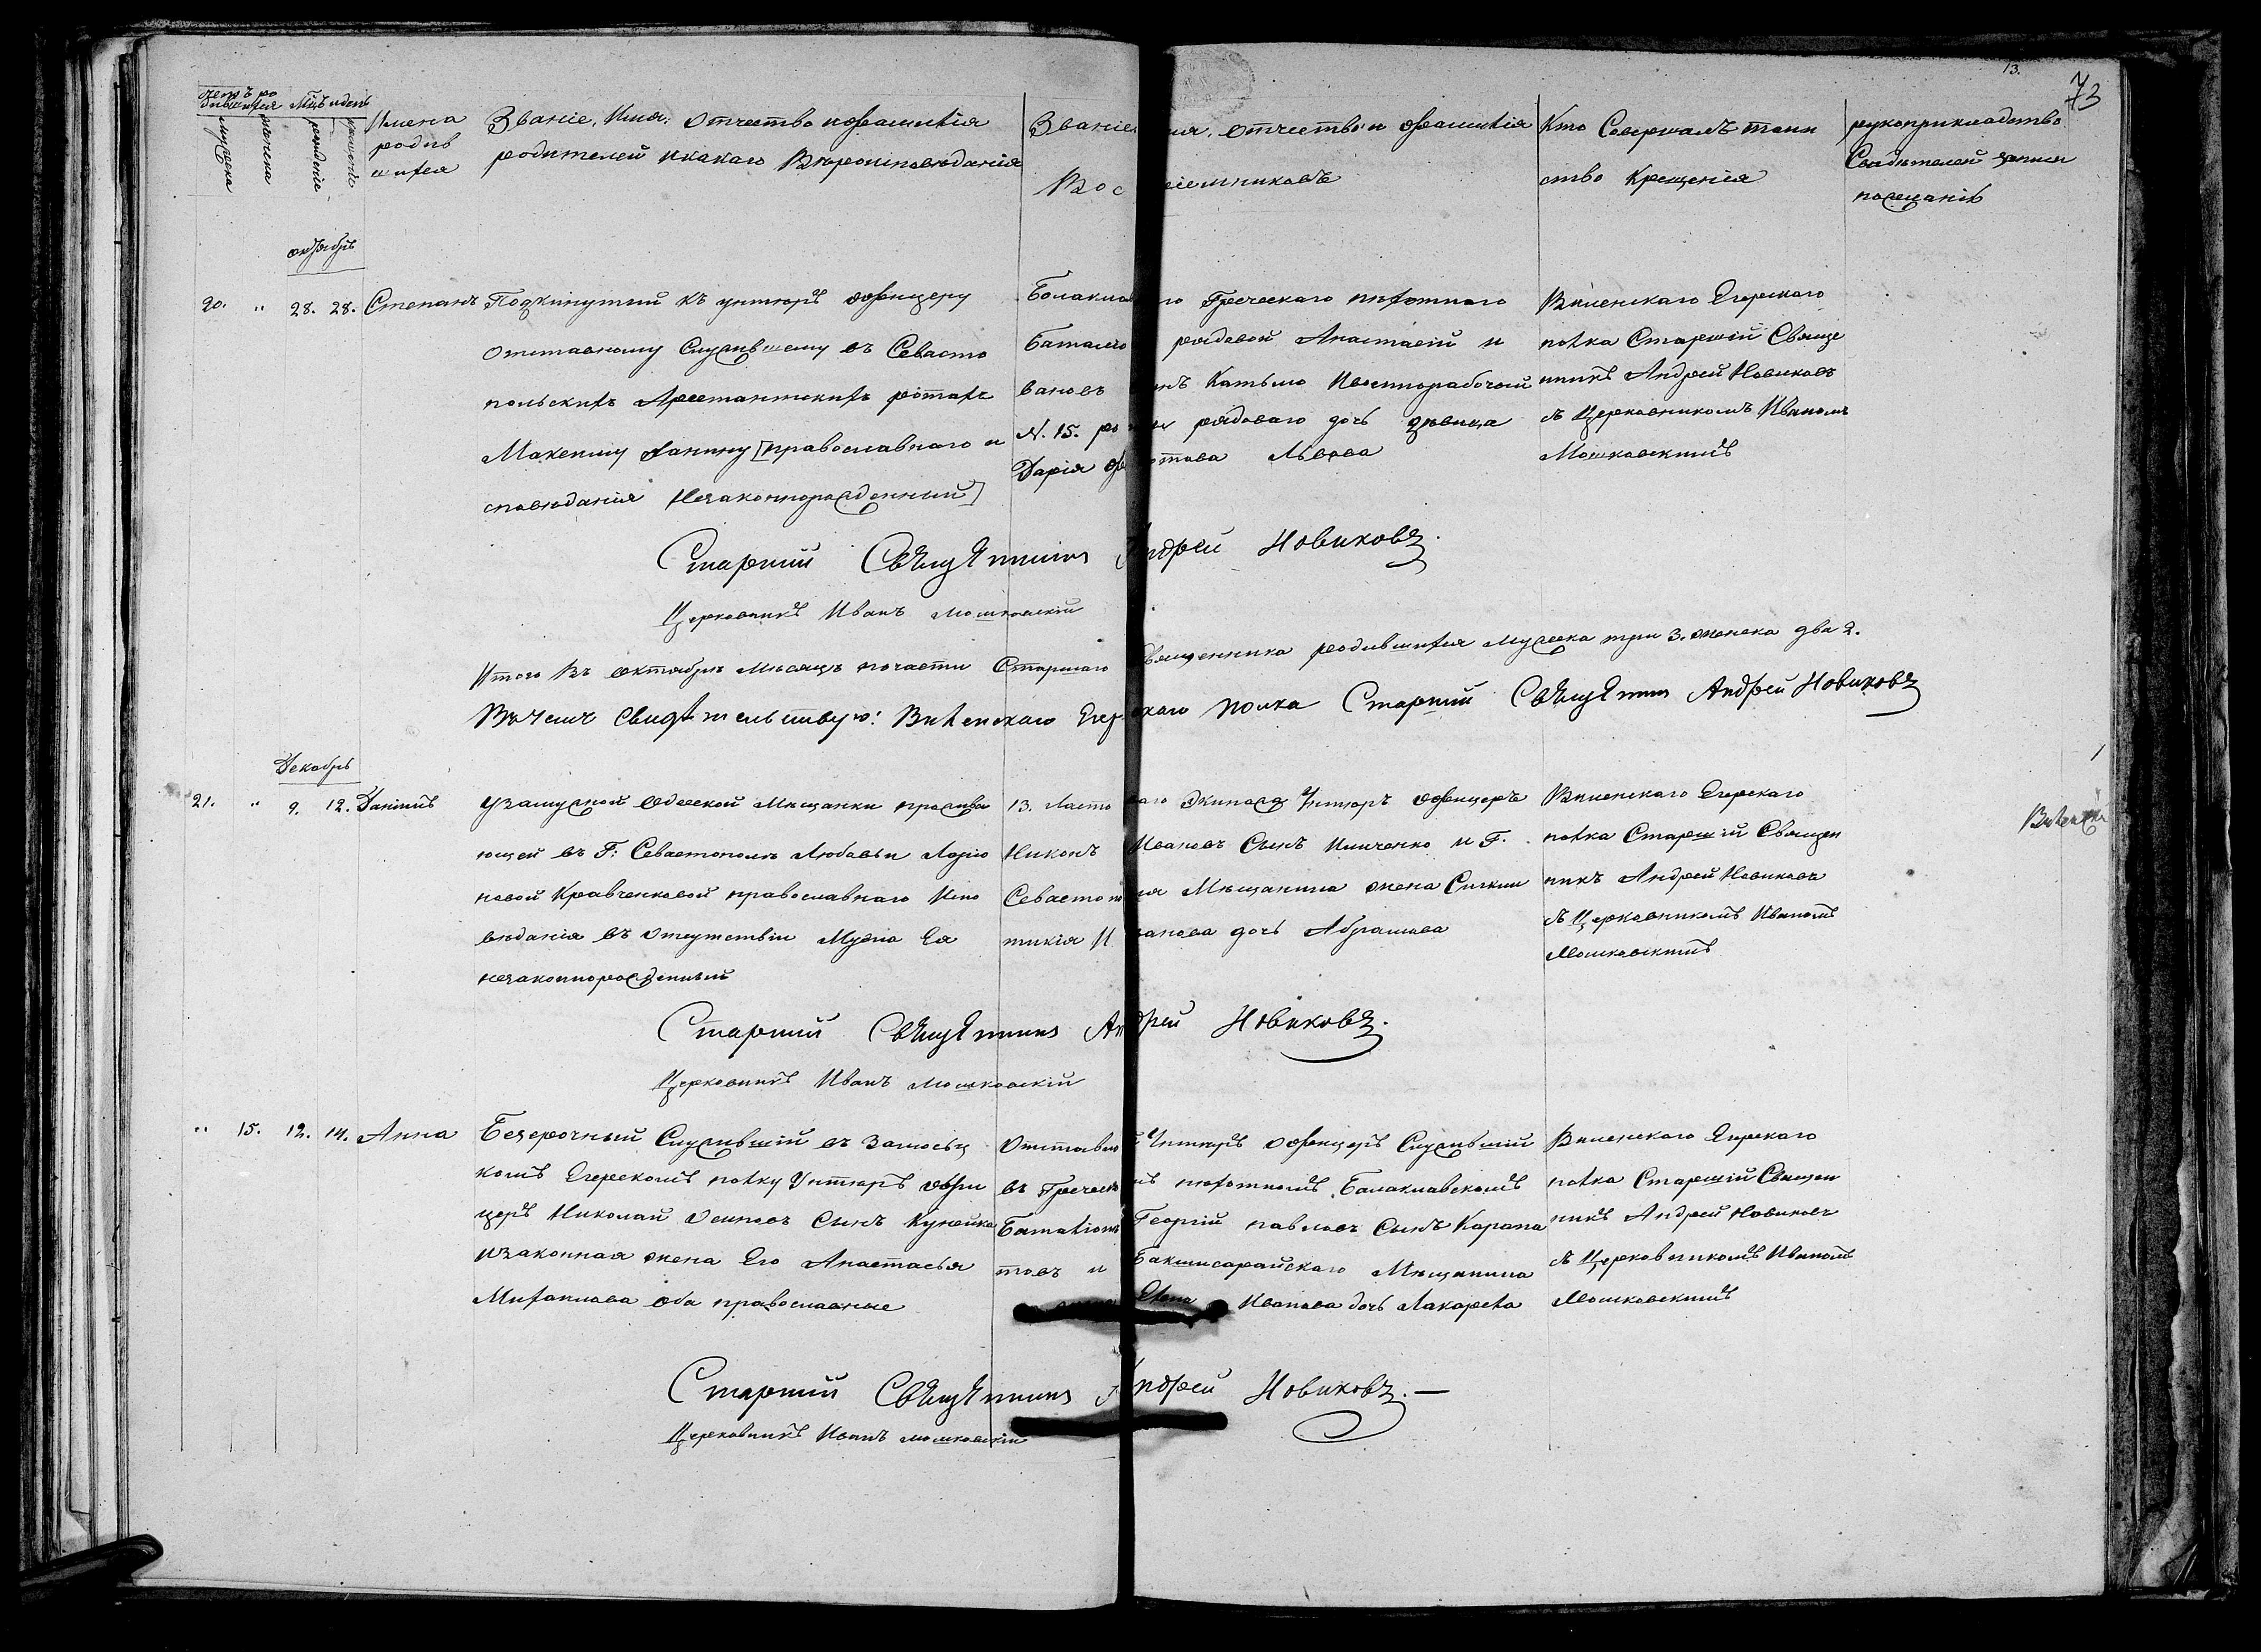 13.
73
Счетъ ро
дившихся
Мцъ и день
мужеска
женска
рожденіе
крещеніе
Имена
родив
шихся
Званіе, Имя, отчество и фамилія
родителей и какаго Вѣроисповѣданія
Званіе имя, отчество и фамилія
Вос пріемниковъ
Кто Совершалъ таин
ство Крещенія
рукоприкладство
Свидѣтелей записи
по желанію
октябрь
20. " 28. 28. Степанъ
Подкинутый къ унтеръ офицеру
отставному Служившему въ Севасто
польскихъ Арестантскихъ ротахъ
Максиму [православнаго и
сповѣданія Незаконнорожденный]
Балаклавскаго Греческаго пѣхотнаго
Баталіо рядовой Анастасій И
вановъ сынъ и военнорабочей
N. 15. роты рядоваго дочь дѣвица
Дарія Львова
Виленскаго Егерскаго
полка Старшій Свяще
нникъ Андрей Новиковъ
съ Церковникомъ Иваномъ
Мошковскимъ
Старшій Священникъ Андрей Новиковъ.
Церковникъ Иванъ Мошковскій
Итого Въ октябрѣ Мѣсяцѣ почасти Старшаго Священника родившихся Мужеска три 3. женска два 2.
Въ чемъ свидѣтельствую: Виленскаго Егерскаго полка Старшій Священникъ Андрей Новиковъ
Декабрь
21. " 9. 12. Даніилъ
У замужной Одесской Мѣщанки прожива
ющей въ Г: Севастополѣ Любовьи Ларіо
новой Кравченковой православнаго Испо
вѣданія въ отсутствіи Мужа Ея
незаконнорожденный
13. Ластоваго Экипажа Унтеръ офицеръ
Никонъ Ивановъ Сынъ Ильченко и Г.
Севастополя Мѣщанина жена Синкли
тикія Иванова дочь Абрамова
Виленскаго Егерскаго
полка Старшій Священ
никъ Андрей Новиковъ
съ Церковникомъ Иваномъ
Мошковскимъ
Старшій Священникъ Андрей Новиковъ.
Церковникъ Иванъ Мошковскій
" 15. 12. 14. Анна
Безсрочный Служившій въ Замосьц
комъ Егерскомъ полку Унтеръ офи
церъ Николай Осиповъ Сынъ
и законная жена Его Анастасья
Михаилова оба православные
Отставной Унтеръ офицеръ Служившій
въ Греческомъ пѣхотномъ Балаклавскомъ
Баталіонѣ Георгій павловъ Сынъ Карапа
товъ и Бакшисарайскаго Мѣщанина
жена Елена Иванова дочь Лакарева
Виленскаго Егерскаго
полка Старшій Священ
никъ Андрей Новиковъ
съ Церковникомъ Иваномъ
Мошковскимъ
Старшій Священникъ Андрей Новиковъ.—
Церковникъ Иванъ Мошковскій